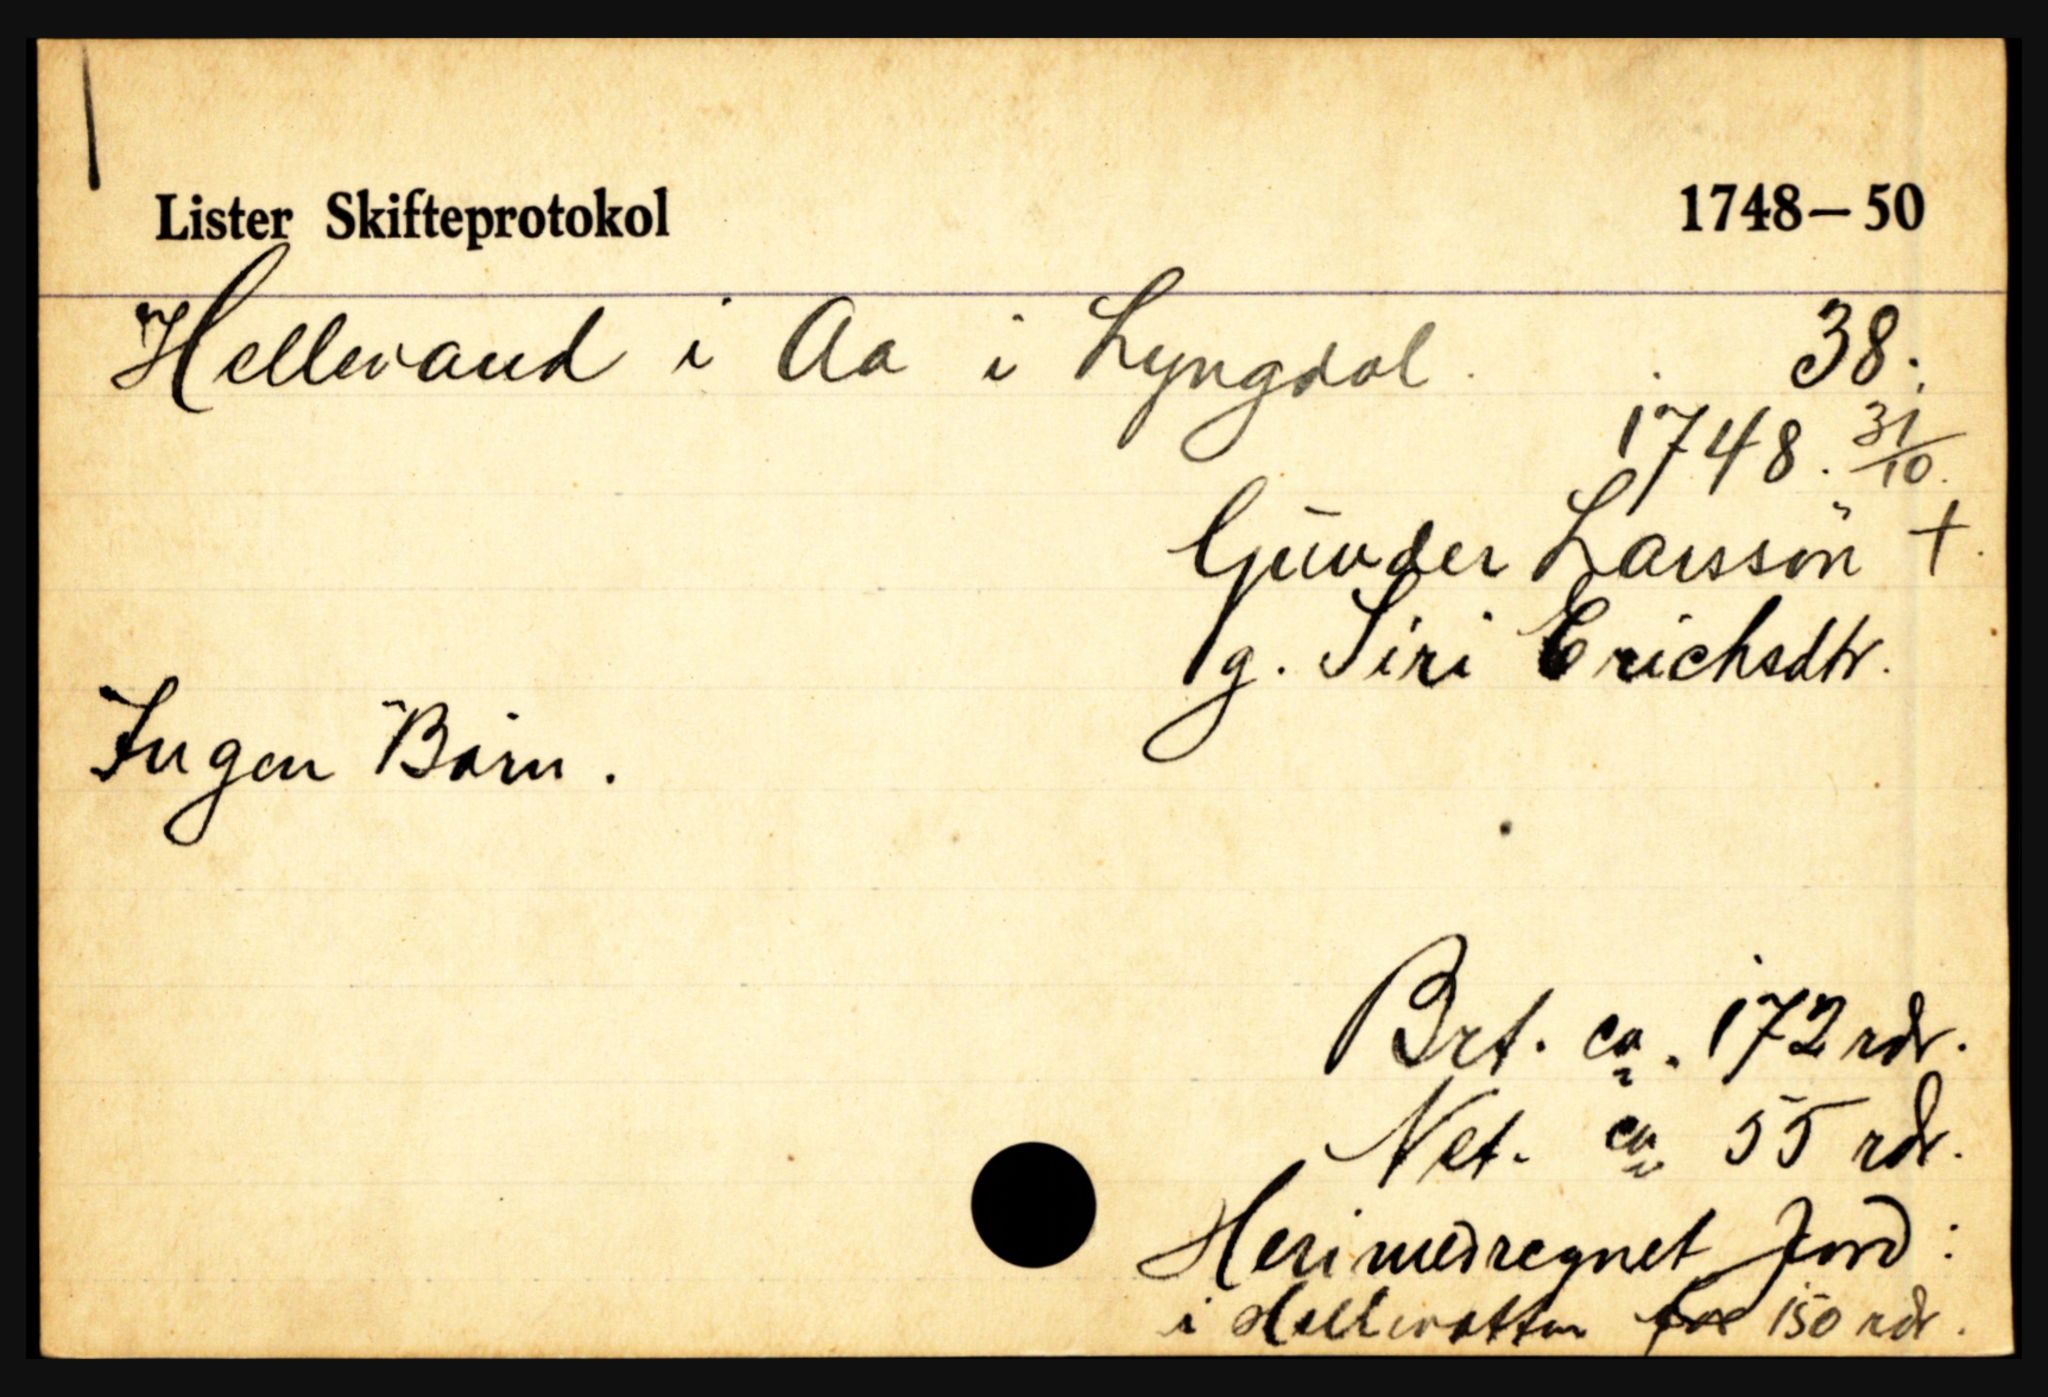 Lister Skifteprotokol 1748–50
Hellevand i Aa i Lyngdal. 38.
1748. 31/10.
Gunder Larssøn †.
g. Siri Erichsdtr.
Ingen Børn.
Brt. ca. 172 rdr.
Net. ca 55 rdr.
Heri medregnet Jord:
i Hellevatten for 150 rdr.